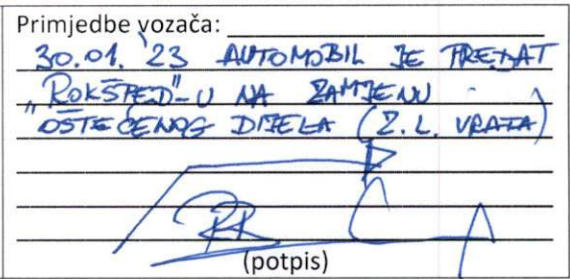 Primjedbe vozača:
30.01.'23 AUTOMOBIL JE PREDAT
„ROKŠPED"-U NA ZAMJENU
OŠTEĆENOG DIJELA (Z.L. VRATA)
(potpis)